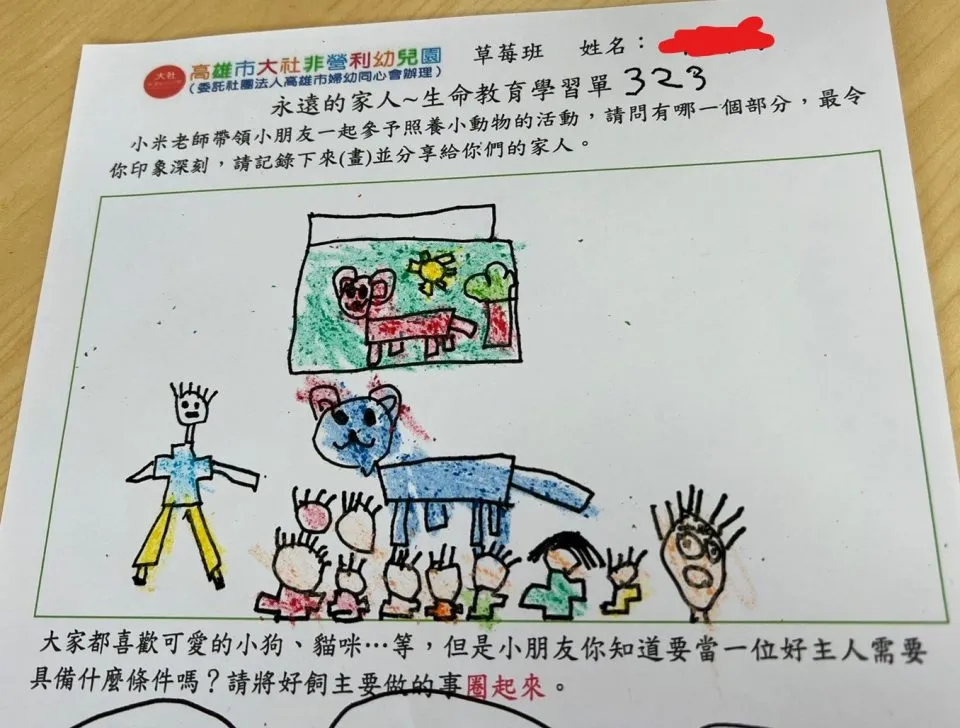 大社
高雄市大社非營利幼兒園
(委託社團法人高雄市婦幼同心會辦理)
草莓班 姓名:
永遠的家人~生命教育學習單 323
小米老師帶領小朋友一起參予照養小動物的活動,請問有哪一個部分,最令
你印象深刻,請記錄下來(畫)並分享給你們的家人。
大家都喜歡可愛的小狗、貓咪…等,但是小朋友你知道要當一位好主人需要
具備什麼條件嗎?請將好飼主要做的事圈起來。